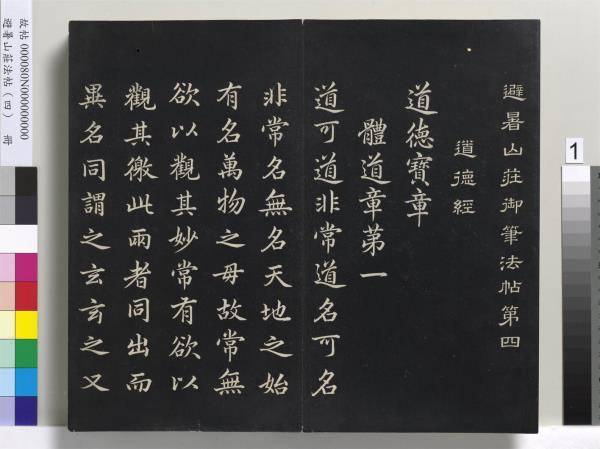 避暑山莊御筆法帖第四
道德經
道德寶章
體道章苐一
道可道非常道名可名
非常名無名天地之始
有名萬物之母故常無
欲以觀其妙常有欲以
觀其徼此兩者同出而
異名同謂之玄玄之又
故帖 000080N000000000
避暑山莊法帖(四) 冊
1